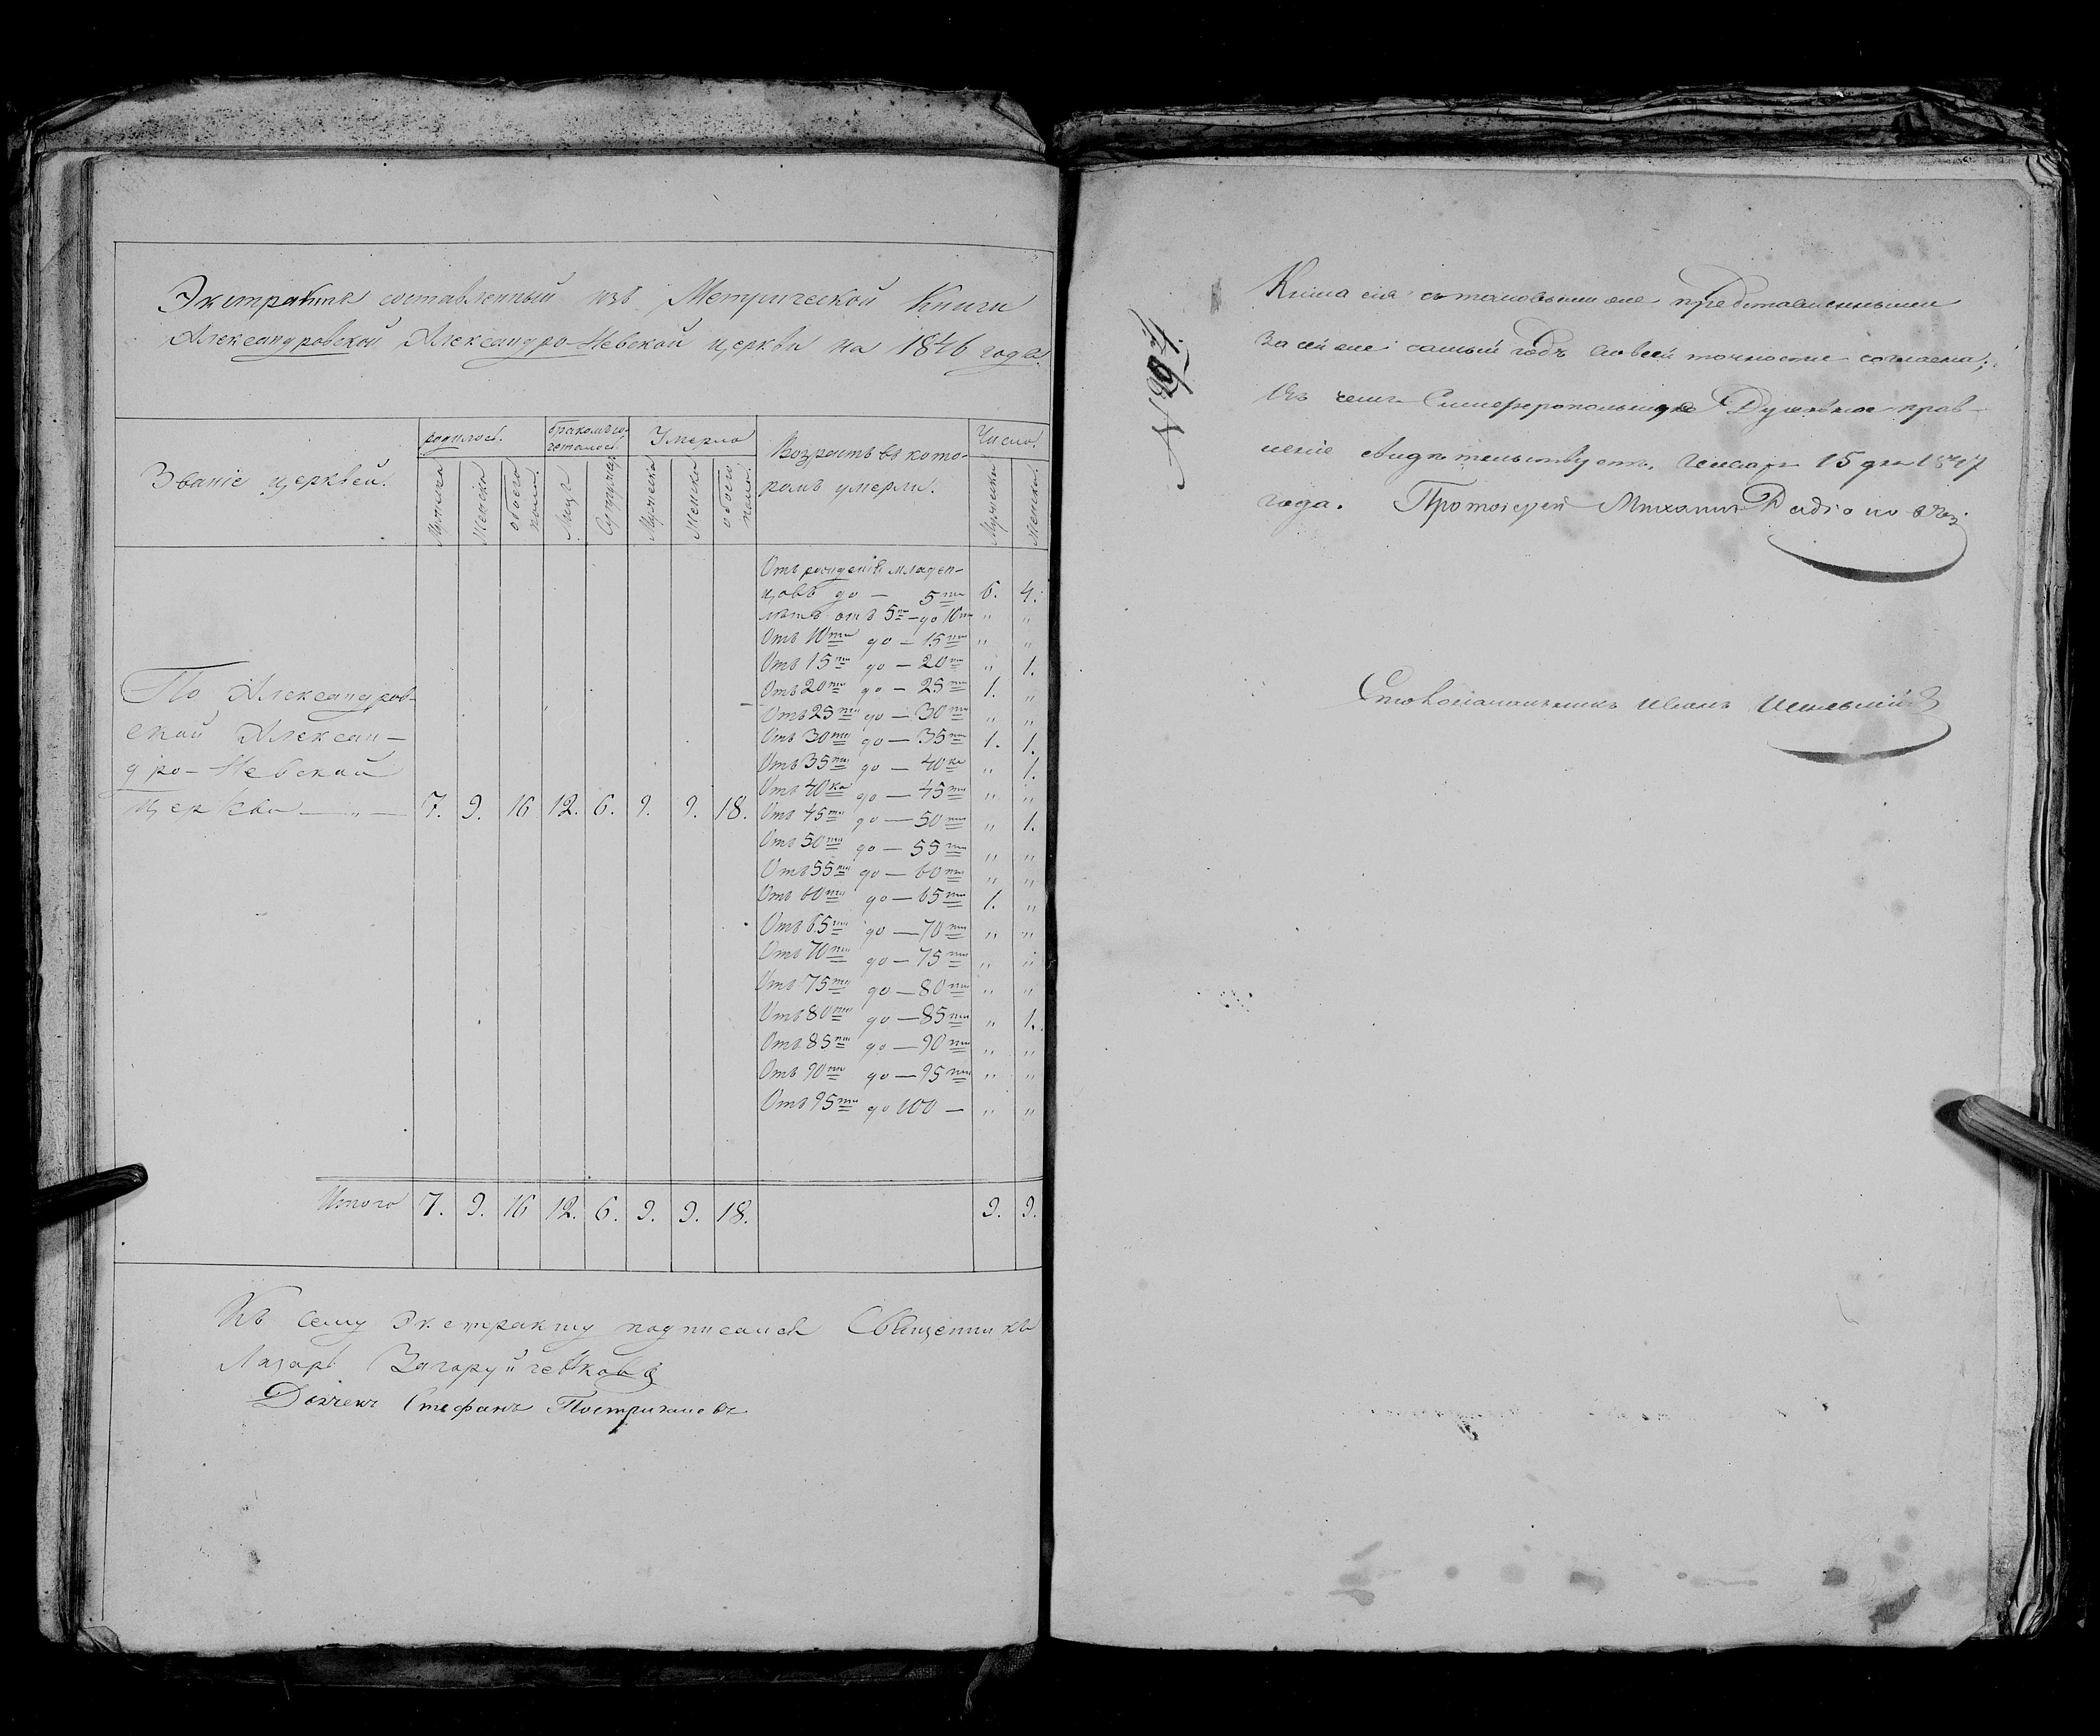 Экстрактъ составленный изъ Метрической Книги
Александровской Александро-Невской церкви на 1846 годъ.
Званіе церквей.
родилось.
Мужеска
Женска
обоего пола.
бракомъ со-
четалось
Лицъ
Супружествъ
Умерло
Мужеска
Женска
обоего пола.
Возрастъ въ кото-
ромъ умерли.
Число.
Мужеска
Женска.
Отъ рожденія младен-
цовъ до — 5ти 6. 4.
лѣтъ отъ 5ти — до 10ти " "
Отъ 10ти до — 15ти " "
Отъ 15ти до — 20ти " 1.
Отъ 20ти до — 25ти 1. "
Отъ 25ти до — 30ти " "
Отъ 30ти до — 35ти 1. 1.
Отъ 35ти до — 40ка " 1.
Отъ 40ка до — 45ти " "
Отъ 45ти до — 50ти " 1.
Отъ 50ти до — 55ти " "
Отъ 55ти до — 60ти " "
Отъ 60ти до — 65ти 1. "
Отъ 65ти до — 70ти " "
Отъ 70ти до — 75ти " "
Отъ 75ти до — 80ти " "
Отъ 80ти до — 85ти " 1.
Отъ 85ти до — 90ти " "
Отъ 90ти до — 95ти " "
Отъ 95ти до 100 — " "
По Александров-
ской Алексан-
дро-Невской
Церкви — " — 7. 9. 16 12. 6. 9. 9. 18.
Итого 7. 9. 16 12. 6. 9. 9. 18. 9. 9.
Къ сему Экстракту подписался Священникъ
Лазарь
Дьячекъ Стефанъ
N 297.
Книга сія съ таковыми же представленными
за сей же самый годъ во всей точности согласна;
въ чемъ Симферопольское Духовное прав-
леніе свидѣтельствуетъ. Генваря 15 дня 1847
года. Протоіерей Михаилъ Родіоновъ
Столоначальникъ Иванъ